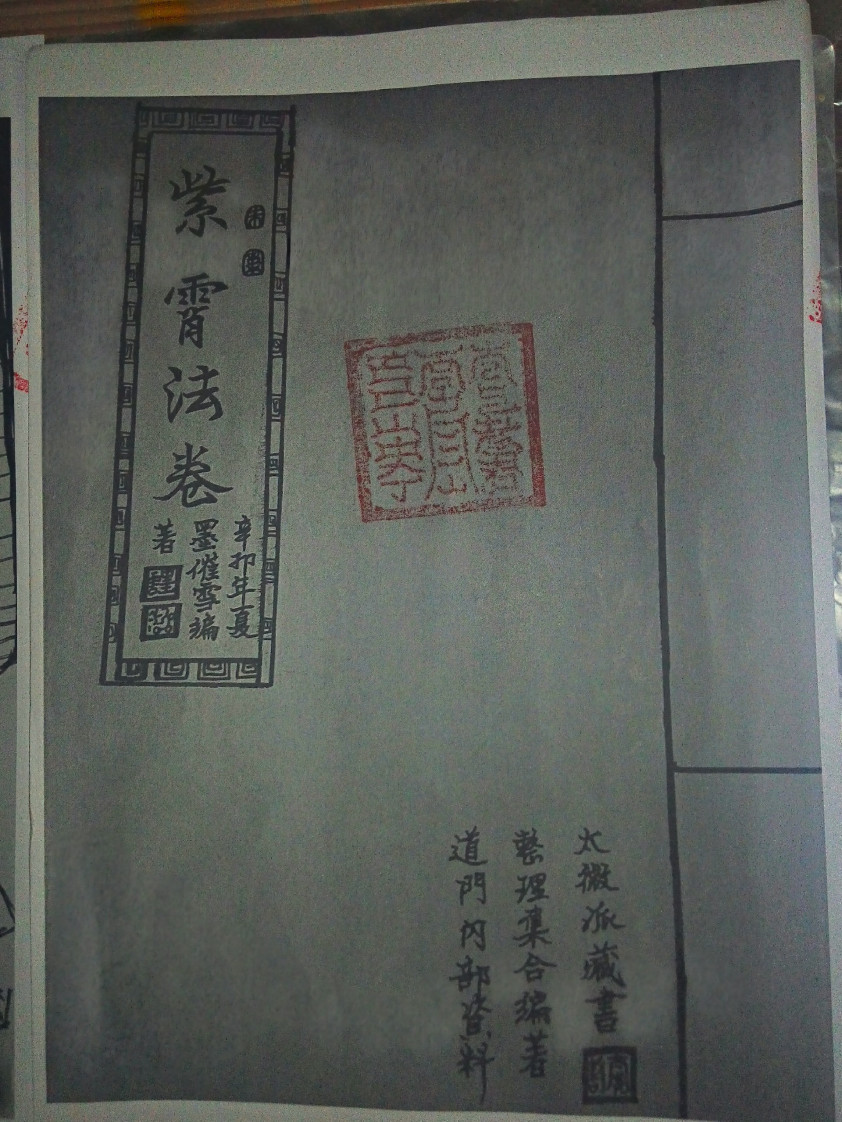 紫霄法卷
辛卯年夏
墨催雪编
著
太微派藏書
整理集合编著
道門内部資料